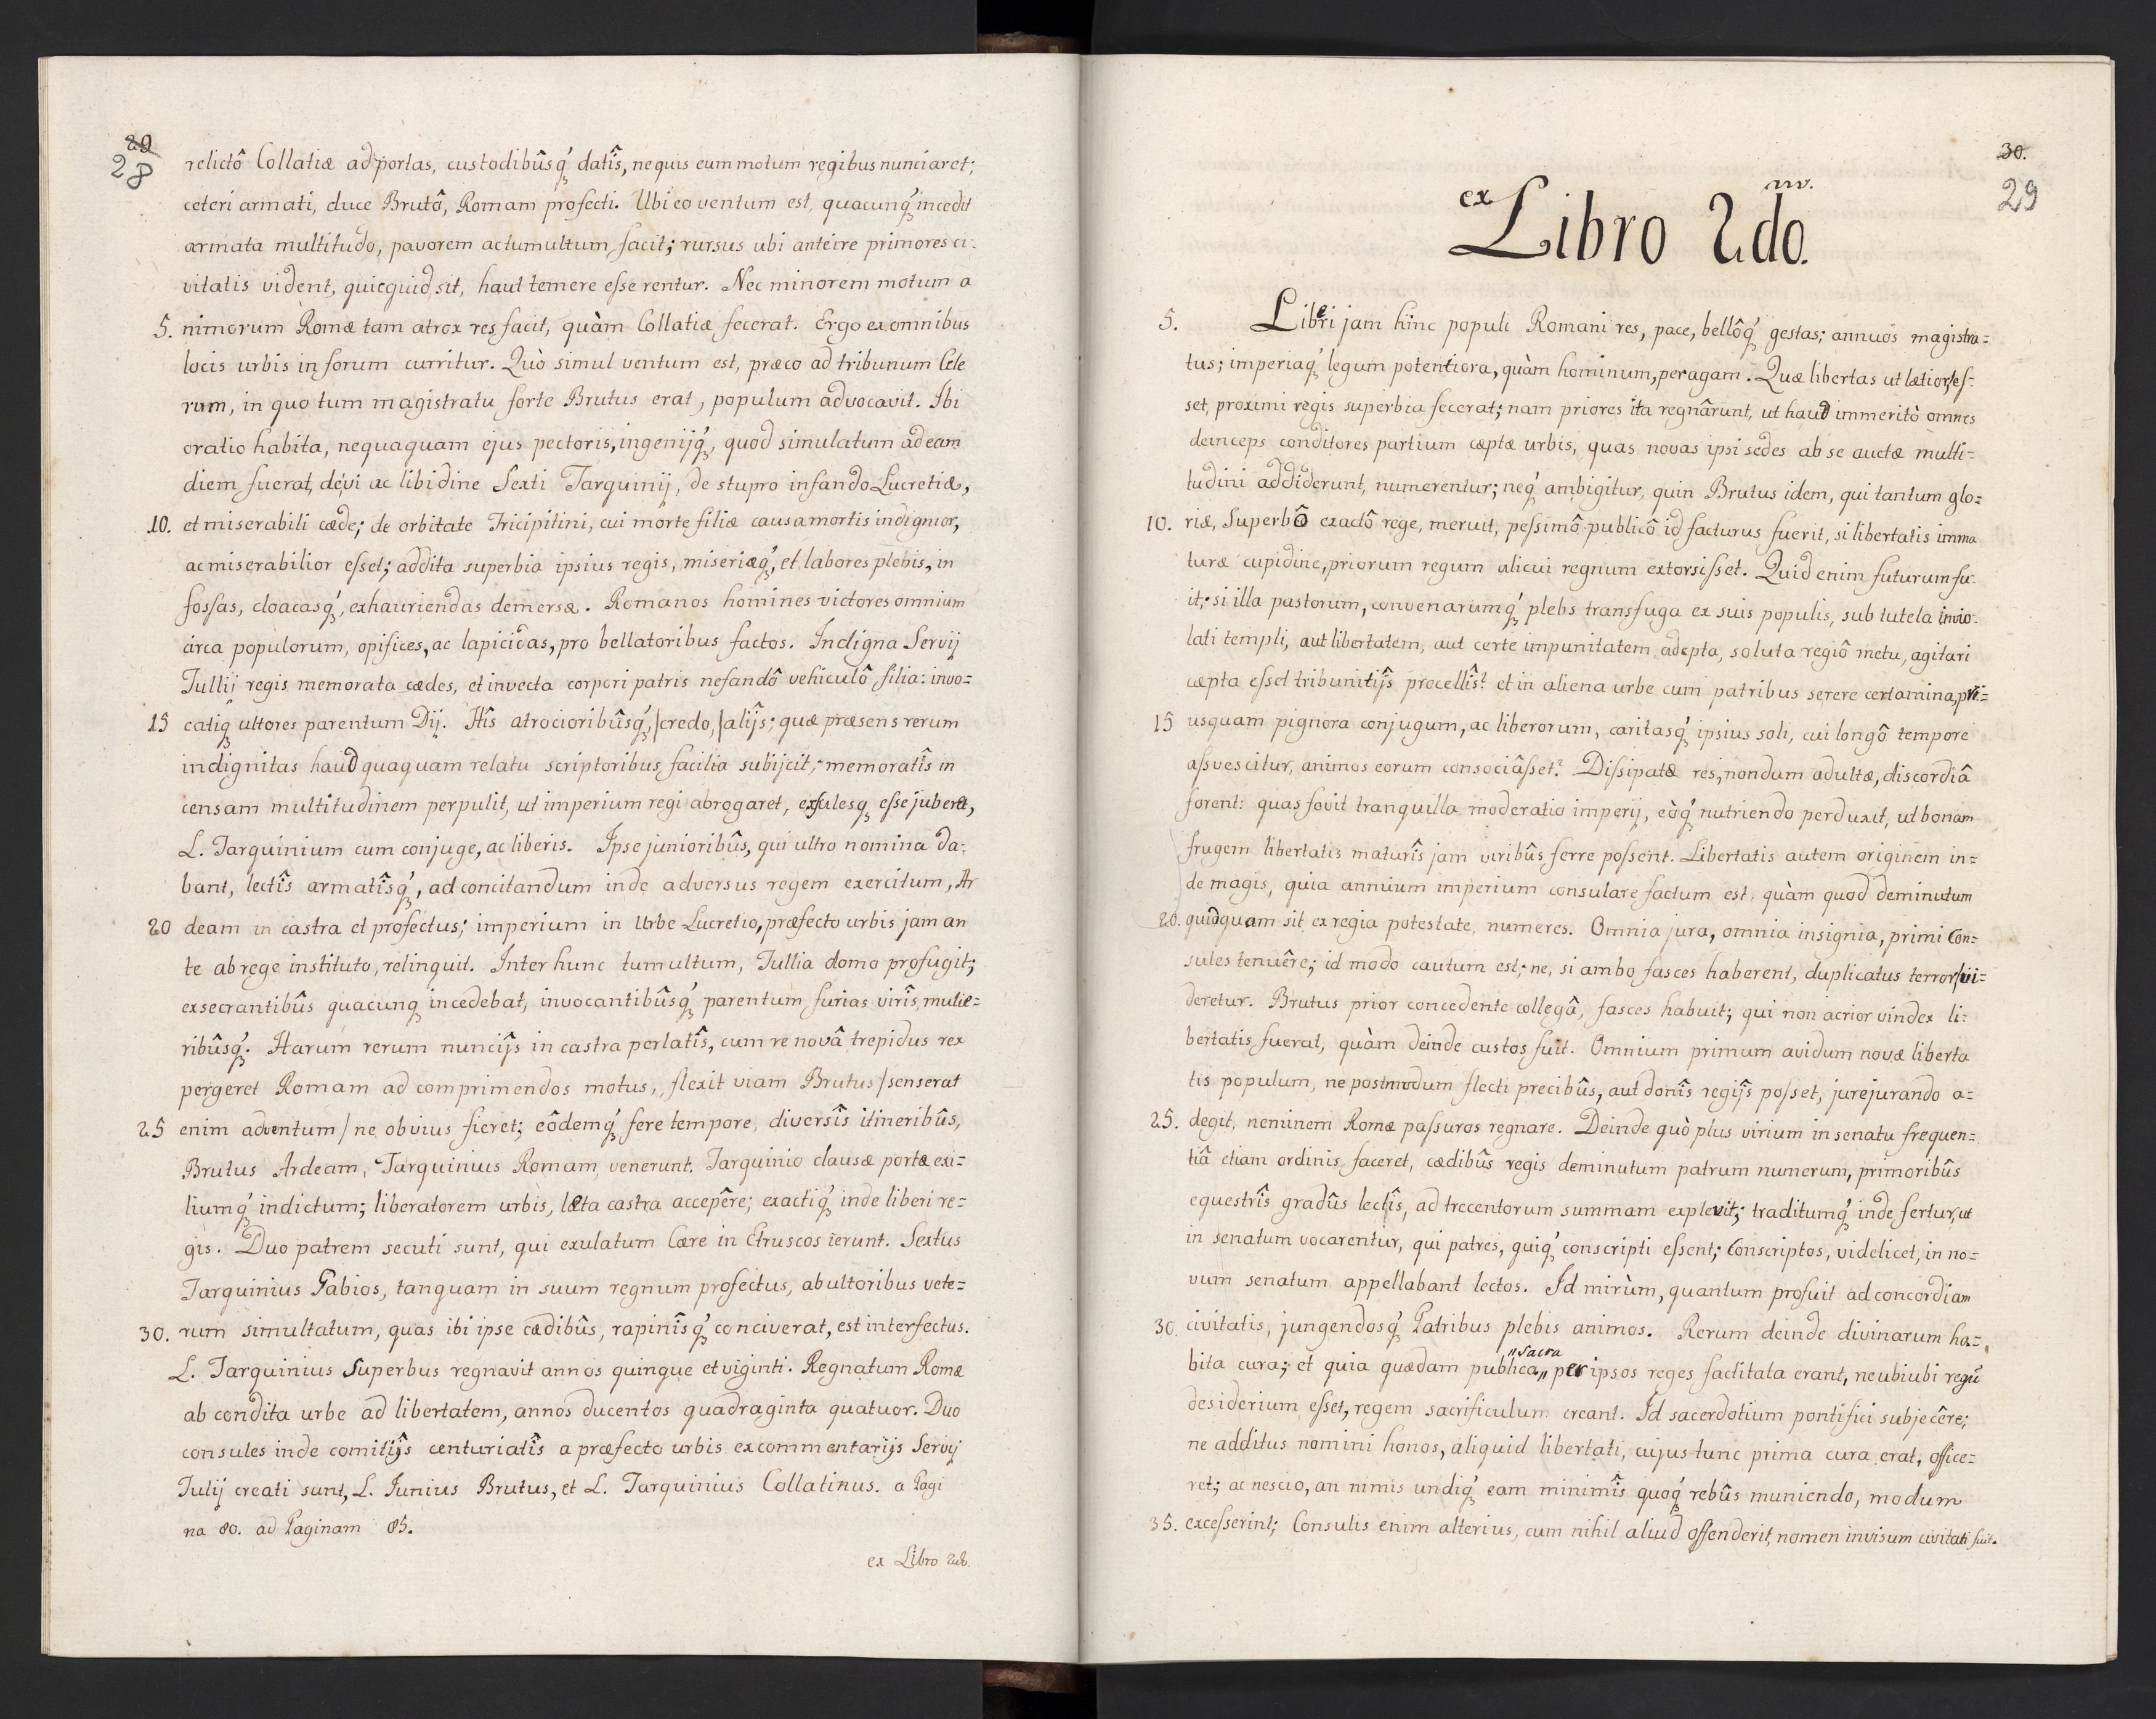 29
28
relictô Collatiæ ad portas, custodibûsq́ʒ datîs, nequis eum motum regibus nunciaret;
ceteri armati, duce Brutô, Romam profecti. Ubi eo ventum est, quacunq́ʒ incedit
armata multitudo, pavorem ac tumultum facit; rursus ubi anteire primores ci-
vitatis vident, quicquid sit, haut temere esse rentur. Nec minorem motum a
5. nimorum Romæ tam atrox res facit, quàm Collatiæ fecerat. Ergo ex omnibus
locis urbis in forum curritur. Quò simul ventum est, præco ad tribunum Cele
rum, in quo tum magistratu forte Brutus erat, populum advocavit. Ibi
oratio habita, nequaquam ejus pectoris, ingenijq́ʒ, quod simulatum ad eam
diem fuerat, de vi ac libidine Sexti Tarquinij, de stupro infando Lucretiæ,
10. et miserabili cæde; de orbitate Tricipitini, cui morte filiæ causa mortis indignior,
ac miserabilior esset; addita superbia ipsius regis, miseriæq́ʒ, et labores plebis, in
fossas, cloacasq́ʒ, exhauriendas demersæ. Romanos homines victores omnium
circa populorum, opifices, ac lapicidas, pro bellatoribus factos. Indigna Servij
Tullij regis memorata cædes, et invecta corpori patris nefandô vehiculô, filia: invo=
15 catiqʒ ultores parentum Dij. Hîs atrocioribûsq́ʒ, /credo,/ alijs; quæ præsens rerum
indignitas haud quaquam relatu scriptoribus facilia subijcit, memoratîs in
censam multitudinem perpulit, ut imperium regi abrogaret, exsulesqʒ esse juberet,
L. Tarquinium cum conjuge, ac liberis. Ipse junioribûs, qui ultro nomina da-
bant, lectîs armatîsq́ʒ, ad concitandum inde adversus regem exercitum, Ar
20 deam in castra et profectus; imperium in Urbe Lucretio, præfecto urbis jam an
te ab rege instituto, relinquit. Inter hunc tumultum, Tullia domo profugit;
exsecrantibûs quacunqʒ incedebat, invocantibûsq́ʒ parentum furias virîs, mulie=
ribûsq́ʒ. Harum rerum nuncijs in castra perlatîs, cum re novâ trepidus rex
pergeret Romam ad comprimendos motus, flexit viam Brutus /senserat
25 enim adventum/ ne obvius fieret; eôdemq́ʒ fere tempore, diversîs itineribûs,
Brutus Ardeam, Tarquinius Romam, venerunt. Tarquinio clausæ portæ exi=
liumq́ʒ indictum; liberatorem urbis, læta castra accepêre; exactiq́ʒ inde liberi re=
gis. Duo patrem secuti sunt, qui exulatum Cære in Etruscos ierunt. Sextus
Tarquinius Gabios, tanquam in suum regnum profectus, ab ultoribus vete=
30. rum simultatum, quas ibi ipse cædibûs, rapinîsq́ʒ conciverat, est interfectus.
L. Tarquinius Superbus regnavit annos quinque et viginti. Regnatum Romæ
ab condita urbe ad libertatem, annos ducentos quadraginta quatuor. Duo
consules inde comitijs centuriatîs a præfecto urbis ex commentarijs Servij
Tulij creati sunt, L. Junius Brutus, et L. Tarquinius Collatinus. a Pagi
na 80. ad Paginam 85.
ex Libro 2do.
30.
29
ex Libro 2do.
5. Liberi jam hinc populi Romani res, pace, bellôq́ʒ gestas; annuos magistra=
tus; imperiaq́ʒ legum potentiora, quàm hominum, peragam. Quæ libertas ut lætior es-
set, proximi regis superbia fecerat; nam priores ita regnârunt, ut haud immeritò omnes
deinceps conditores partium cæptæ urbis, quas novas ipsi sedes ab se auctæ multi=
tudini addiderunt, numerentur; neq́ʒ ambigitur, quin Brutus idem, qui tantum glo=
10. riæ, Superbô exactô rege, meruit, pessimô publicô id facturus fuerit, si libertatis imma
turæ cupidine, priorum regum alicui regnum extorsisset. Quid enim futurum fu-
it, si illa pastorum, convenarumq́ʒ plebs transfuga ex suis populis, sub tutela invio-
lati templi, aut libertatem, aut certe impunitatem adepta, soluta regiô metu, agitari
cæpta esset tribunitijs procellîs? et in aliena urbe cum patribus serere certamina, pri=
15 usquam pignora conjugum, ac liberorum, caritasq́ʒ ipsius soli, cui longô tempore
assvescitur, animos eorum consociâsset? Dissipatæ res, nondum adultæ, discordiâ
forent: quas fovit tranquilla moderatio imperij, eòq́ʒ nutriendo perduxit, ut bonam
frugem libertatis maturîs jam viribûs ferre possent. Libertatis autem originem in=
de magis, quia annuum imperium consulare factum est, quàm quod deminutum
20. quidquam sit ex regia potestate, numeres. Omnia jura, omnia insignia, primi Con=
sules tenuêre; id modo cautum est; ne, si ambo fasces haberent, duplicatus terror vi=
deretur. Brutus prior concedente collegâ, fasces habuit; qui non acrior vindex li=
bertatis fuerat, quàm deinde custos fuit. Omnium primum avidum novæ liberta
tis populum, ne postmodum flecti precibûs, aut donîs regijs posset, jurejurando a=
25. degit, neminem Romæ passuros regnare. Deinde quò plus virium in senatu frequen=
tiâ etiam ordinis faceret, cædibûs regis deminutum patrum numerum, primoribûs
equestrîs gradûs lectîs, ad trecentorum summam explevit; traditumq́ʒ inde fertur, ut
in senatum vocarentur, qui patres, quiq́ʒ conscripti essent; Conscriptos, videlicet, in no=
vum senatum appellabant lectos. Id mirùm, quantum profuit ad concordiam
30. civitatis, jungendosq́ʒ Patribus plebis animos. Rerum deinde divinarum ha=
bita cura; et quia quædam publica "sacra" per ipsos reges factitata erant, ne ubiubi regũ
desiderium esset, regem sacrificulum creant. Id sacerdotium pontifici subjecêre;
ne additus nomini honos, aliquid libertati, cujus tunc prima cura erat, office=
ret; ac nescio, an nimis undiq́ʒ eam minimîs quoq́ʒ rebûs muniendo, modum
35. excesserint; Consulis enim alterius, cum nihil aliud offenderit, nomen invisum civitati fuit.